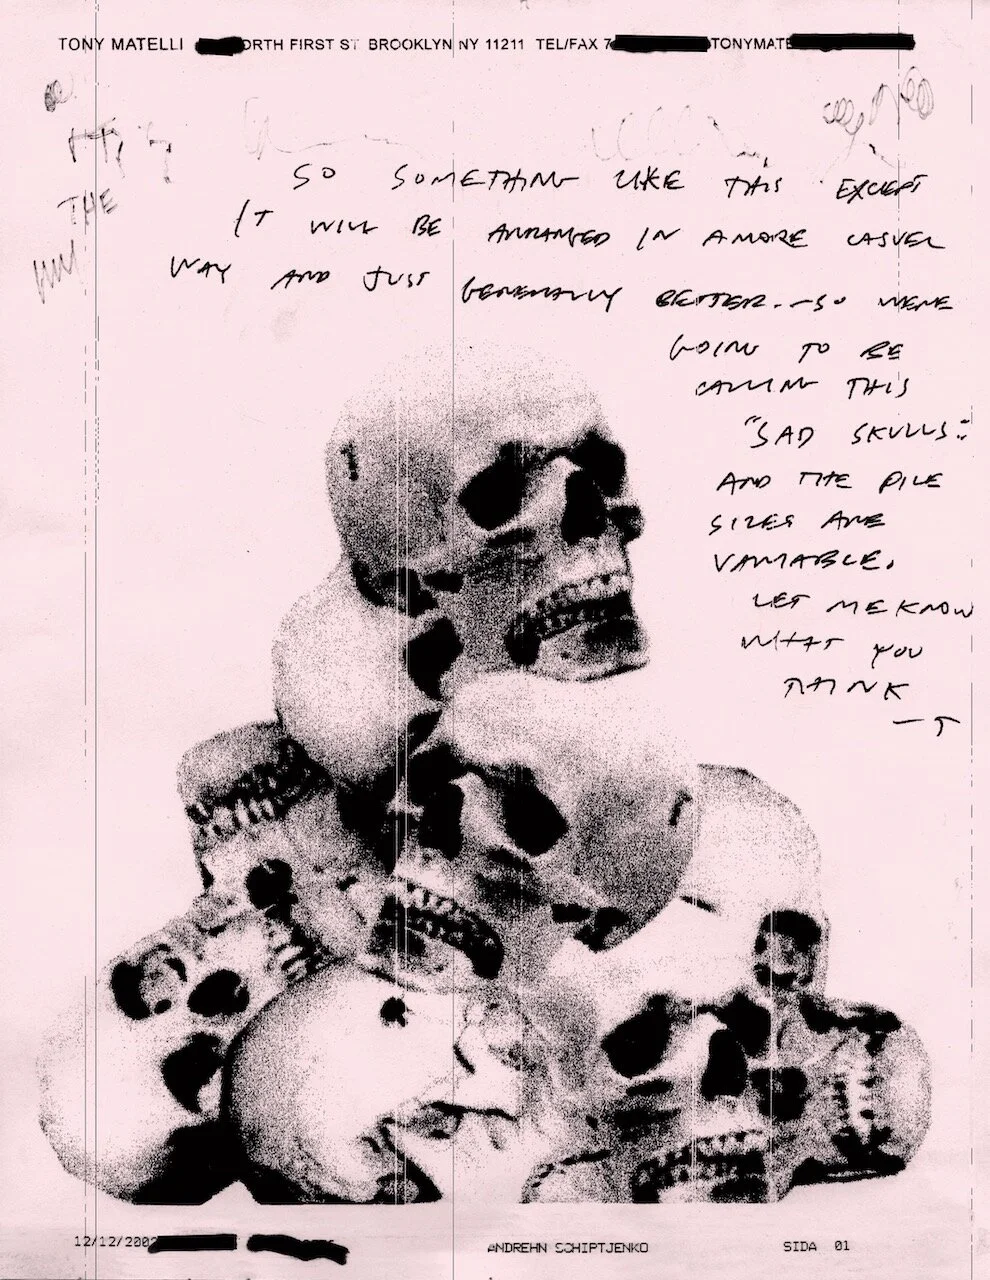 TONY MATELLI ORTH FIRST ST BROOKLYN NY 11211 TEL/FAX 7 TONYMATE
THE
SO SOMETHING LIKE THIS EXCEPT
IT WILL BE ARRANGED IN A MORE CASUEL
WAY AND JUST GENERALLY BETTER. - SO WERE
GOING TO BE
CALLING THIS
"SAD SKULLS."
AND THE PILE
SIZES ARE
VARIABLE.
LET ME KNOW
WHAT YOU
THINK
— T
12/12/2002 ANDREHN SCHIPTJENKO SIDA 01